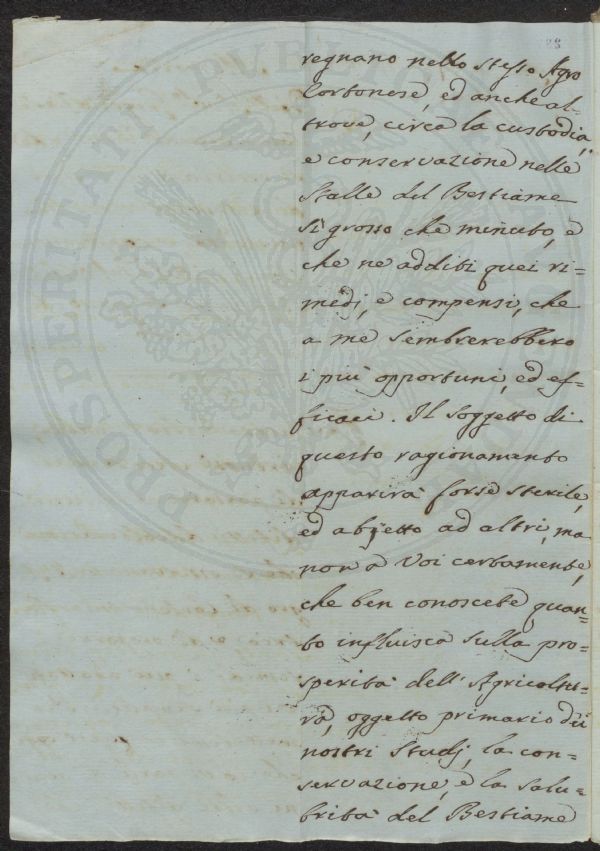 88
regnano nello stesso Agro
Cortonese, ed anche al-
trove, circa la custodia,
e conservazione nelle
Stalle del Bestiame
sì grosso che minuto, e
che ne additi quei ri-
medj, e compensi, che
a me sembrerebbero
i più opportuni, ed ef-
ficaci. Il soggetto di
questo ragionamento
apparirà forse sterile,
ed abjetto ad altri, ma
non a Voi certamente,
che ben conoscete quan-
to influisca sulla pro-
sperità dell' Agricoltu-
ra, oggetto primario dei
nostri Studj, la con-
servazione, e la salu-
brità del Bestiame
PROSPERITATI PVBLICAE